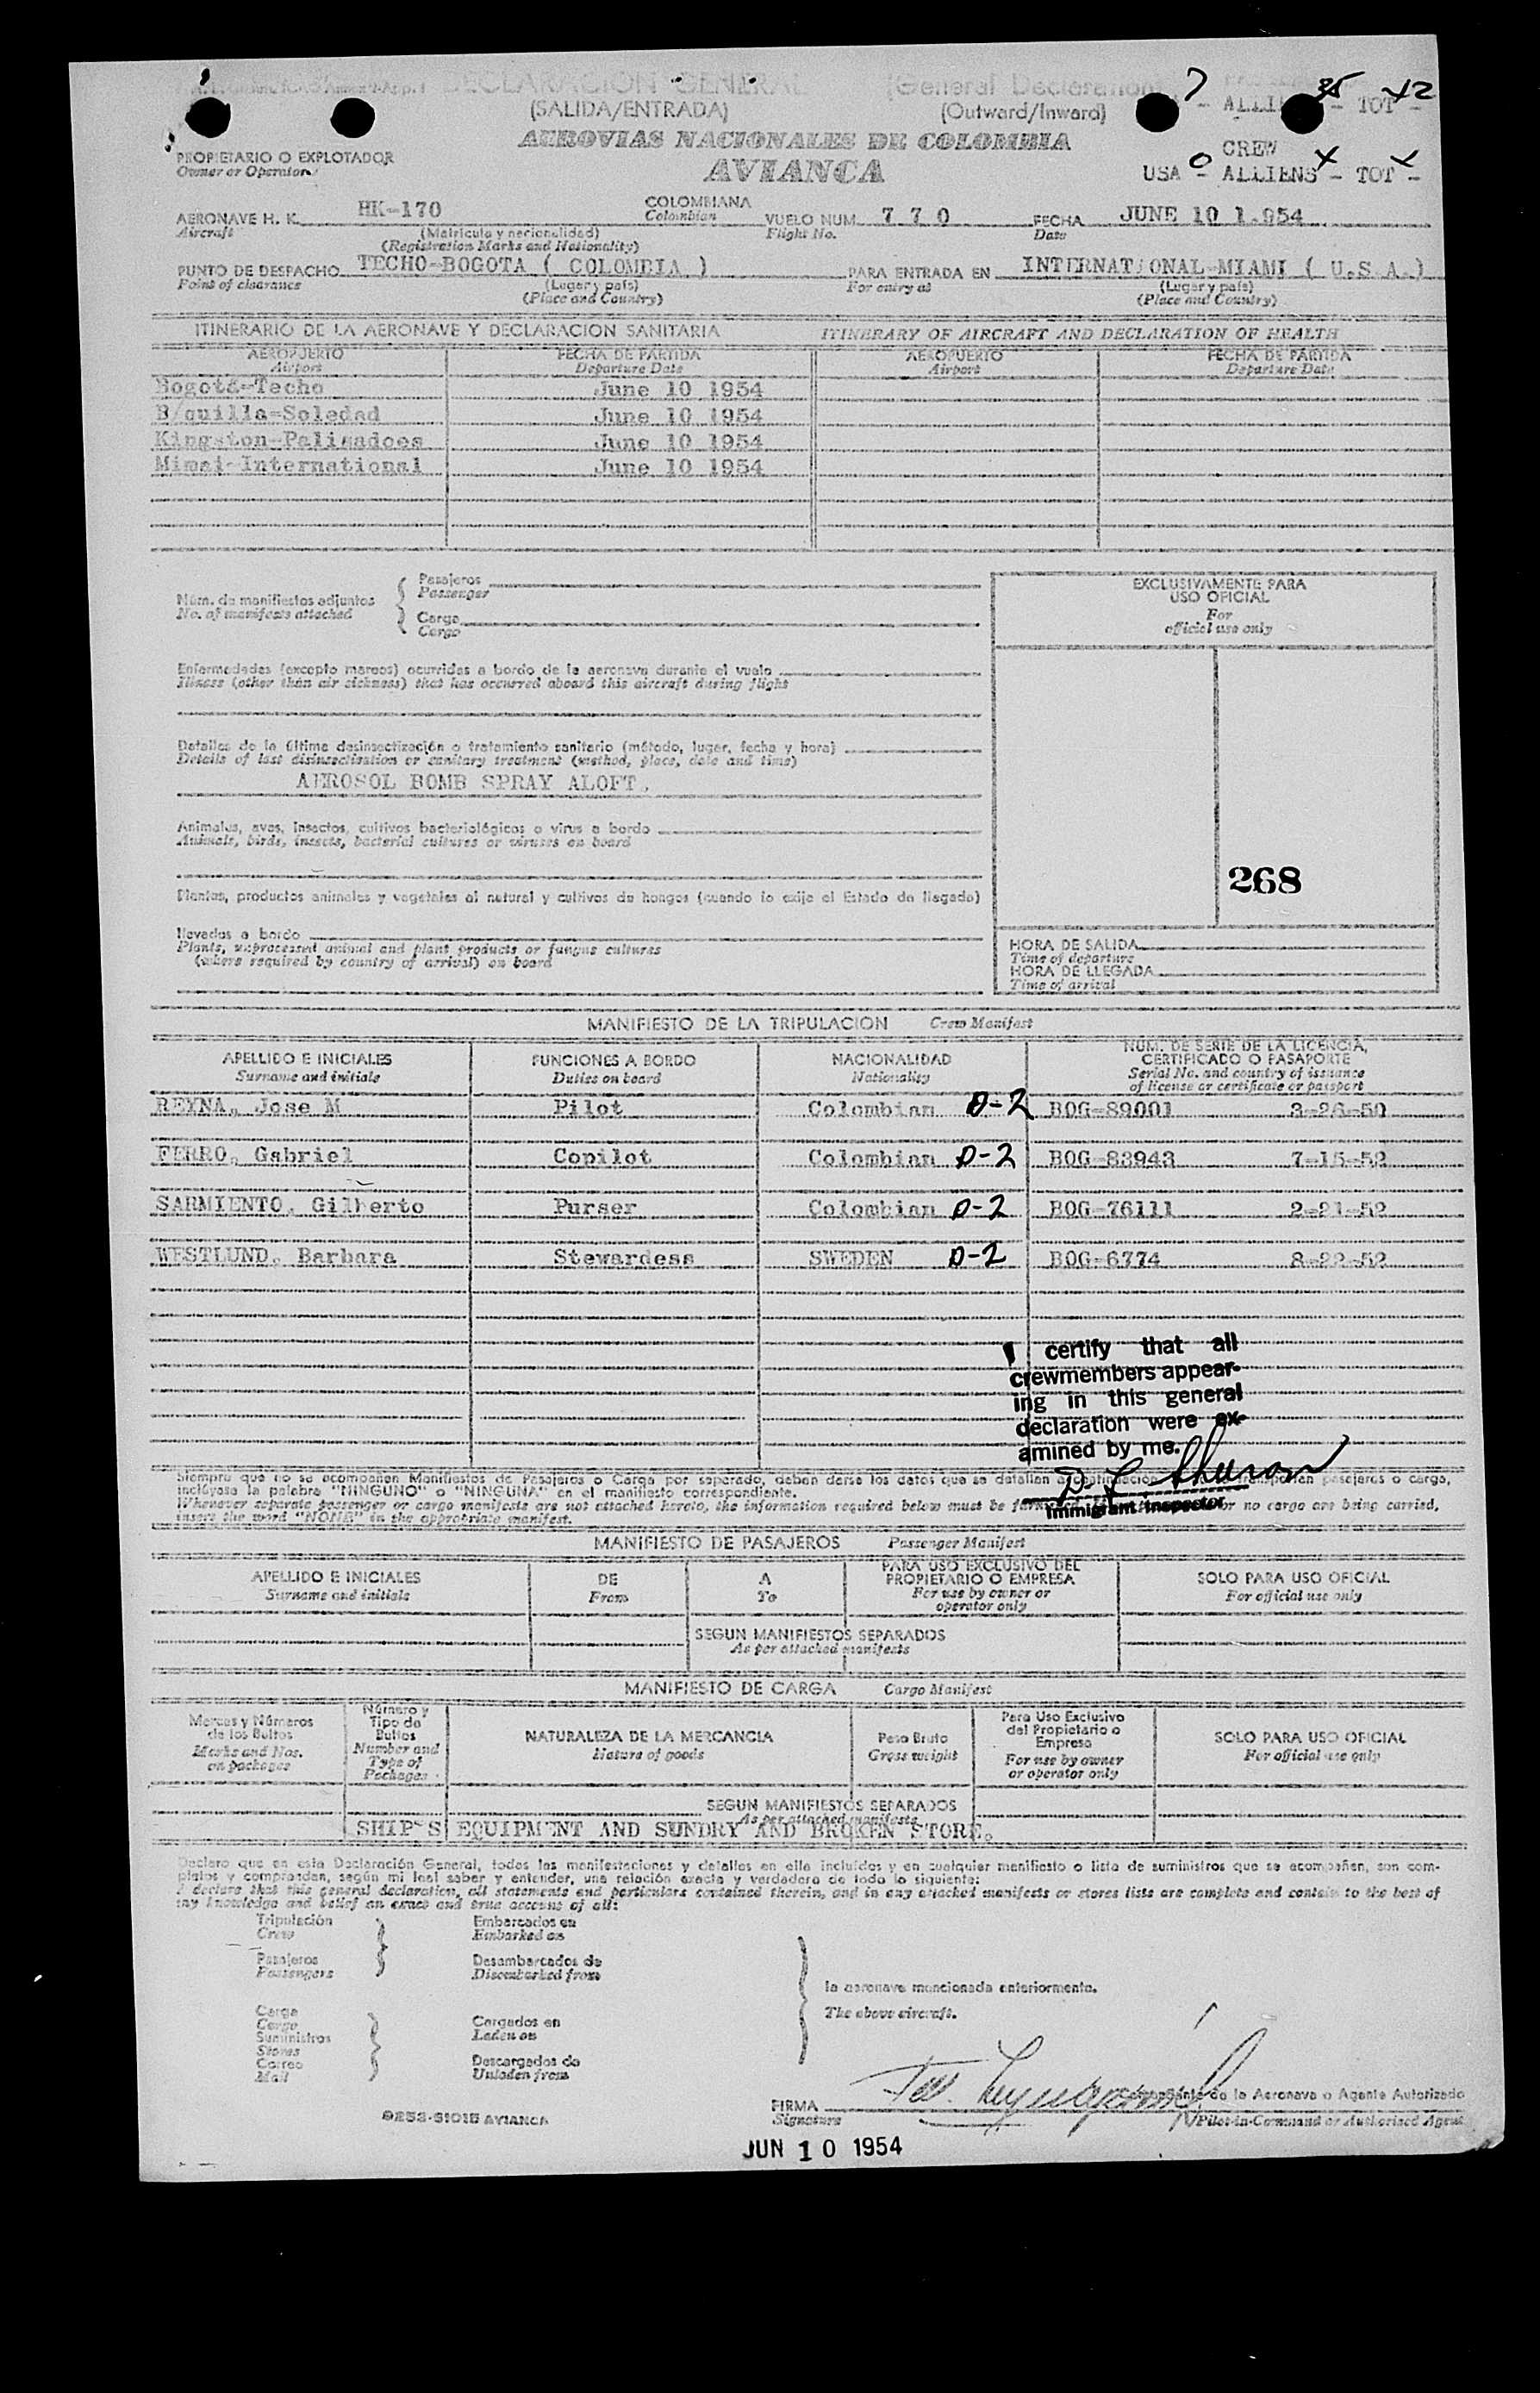 DECLARACION GENERAL (General Declaration)
(SALIDA/ENTRADA) (Outward/Inward)
7 - ALLIENS 35 - TOT 42 -
AEROVIAS NACIONALES DE COLOMBIA
AVIANCA
PROPIETARIO O EXPLOTADOR
Owner or Operator
CREW
USA 0 - ALLIENS 4 - TOT 4 -
AERONAVE H. K. HK-170 COLOMBIANA VUELO NUM. 7 7 0 FECHA JUNE 10 1.954
Aircraft (Matrícula y nacionalidad) Colombian Flight No. Date
(Registration Marks and Nationality)
PUNTO DE DESPACHO TECHO-BOGOTA ( COLOMBIA ) PARA ENTRADA EN INTERNATIONAL-MIAMI ( U.S.A.)
Point of clearance (Lugar y país) For entry at (Lugar y país)
(Place and Country) (Place and Country)
ITINERARIO DE LA AERONAVE Y DECLARACION SANITARIA ITINERARY OF AIRCRAFT AND DECLARATION OF HEALTH
AEROPUERTO FECHA DE PARTIDA AEROPUERTO FECHA DE PARTIDA
Airport Departure Date Airport Departure Date
Bogotá-Techo June 10 1954
B/quilla-Soledad June 10 1954
Kingston-Palisadoes June 10 1954
Mimai-International June 10 1954
Núm. de manifiestos adjuntos
No. of manifests attached
Pasajeros
Passenger
Carga
Cargo
EXCLUSIVAMENTE PARA
USO OFICIAL
For
official use only
Enfermedades (excepto mareos) ocurridas a bordo de la aeronave durante el vuelo
Illness (other than air sickness) that has occurred aboard this aircraft during flight
Detalles de la última desinsectización o tratamiento sanitario (método, lugar, fecha y hora)
Details of last disinsectisation or sanitary treatment (method, place, date and time)
AEROSOL BOMB SPRAY ALOFT.
Animales, aves, insectos, cultivos bacteriológicos o virus a bordo
Animals, birds, insects, bacterial cultures or viruses on board
268
Plantas, productos animales y vegetales al natural y cultivos de hongos (cuando lo exija el Estado de llegada)
llevados a bordo
Plants, unprocessed animal and plant products or fungus cultures
(where required by country of arrival) on board
HORA DE SALIDA
Time of departure
HORA DE LLEGADA
Time of arrival
MANIFIESTO DE LA TRIPULACION Crew Manifest
APELLIDO E INICIALES FUNCIONES A BORDO NACIONALIDAD NUM. DE SERIE DE LA LICENCIA, CERTIFICADO O PASAPORTE
Surname and initials Duties on board Nationality Serial No. and country of issuance of license or certificate or passport
REYNA, Jose M Pilot Colombian D-2 BOG-89001 3-26-50
FERRO, Gabriel Copilot Colombian D-2 BOG-83943 7-15-52
SARMIENTO, Gilberto Purser Colombian D-2 BOG-76111 2-21-52
WESTLUND, Barbara Stewardess SWEDEN D-2 BOG-6774 8-22-52
I certify that all
crewmembers appear-
ing in this general
declaration were ex-
amined by me.
Immigrant Inspector
Siempre que no se acompañen Manifiestos de Pasajeros o Carga por separado, deben darse los datos que se detallan a continuación transportan pasajeros o carga,
inclúyase la palabra "NINGUNO" o "NINGUNA" en el manifiesto correspondiente.
Whenever separate passenger or cargo manifests are not attached hereto, the information required below must be or no cargo are being carried,
insert the word "NONE" in the appropriate manifest.
MANIFIESTO DE PASAJEROS Passenger Manifest
APELLIDO E INICIALES DE A PARA USO EXCLUSIVO DEL PROPIETARIO O EMPRESA SOLO PARA USO OFICIAL
Surname and initials From To For use by owner or operator only For official use only
SEGUN MANIFIESTOS SEPARADOS
As per attached manifests
MANIFIESTO DE CARGA Cargo Manifest
Marcas y Números de los Bultos Número y Tipo de Bultos NATURALEZA DE LA MERCANCIA Peso Bruto Para Uso Exclusivo del Propietario o Empresa SOLO PARA USO OFICIAL
Marks and Nos. on packages Number and Type of Packages Nature of goods Gross weight For use by owner or operator only For official use only
SEGUN MANIFIESTOS SEPARADOS
As per attached manifests
SHIP'S EQUIPMENT AND SUNDRY AND BROKEN STORE.
Declaro que en esta Declaración General, todas las manifestaciones y detalles en ella incluídos y en cualquier manifiesto o lista de suministros que se acompañen, son com-
pletos y comprenden, según mi leal saber y entender, una relación exacta y verdadera de todo lo siguiente:
I declare that this general declaration, all statements and particulars contained therein, and in any attached manifests or stores lists are complete and contain to the best of
my knowledge and belief an exact and true account of all:
Tripulación Embarcados en
Crew Embarked on
Pasajeros Desembarcados de
Passengers Disembarked from
la aeronave mencionada anteriormente.
The above aircraft.
Carga Cargados en
Cargo Laden on
Suministros
Stores
Correo Descargados de
Mail Unladen from
FIRMA
Signature
de la Aeronave o Agente Autorizado
Pilot-in-Command or Authorised Agent
AVIANCA
JUN 10 1954